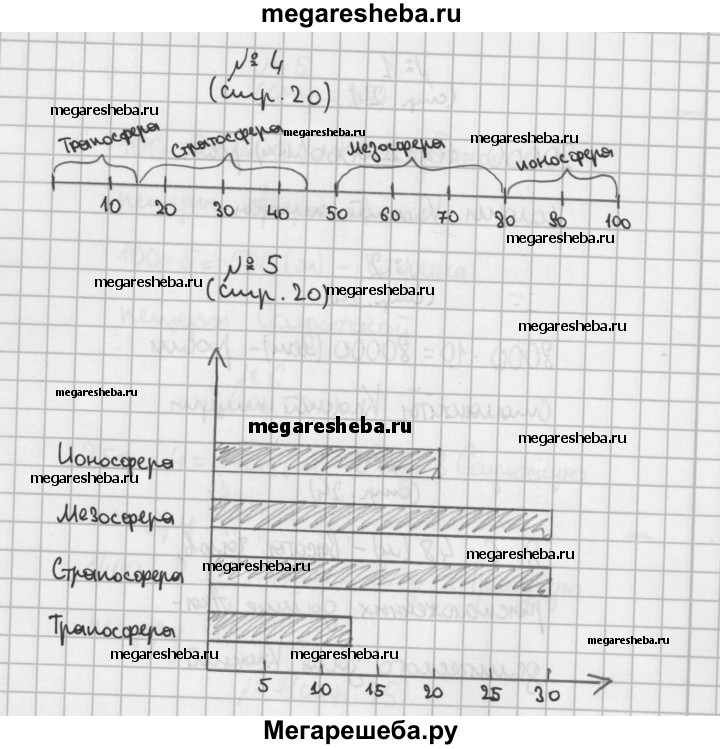 megaresheba.ru
№ 4
(стр. 20)
megaresheba.ru
Тропосфера Стратосфера megaresheba.ru Мезосфера megaresheba.ru ионосфера
10 20 30 40 50 60 70 80 90 100
megaresheba.ru
№ 5
megaresheba.ru (стр. 20) megaresheba.ru
megaresheba.ru
8000 · 10 = 80000
megaresheba.ru
megaresheba.ru
megaresheba.ru
Ионосфера
megaresheba.ru
Мезосфера
megaresheba.ru
megaresheba.ru
Стратосфера
Тропосфера
megaresheba.ru megaresheba.ru megaresheba.ru
5 10 15 20 25 30
Мегарешеба.ру